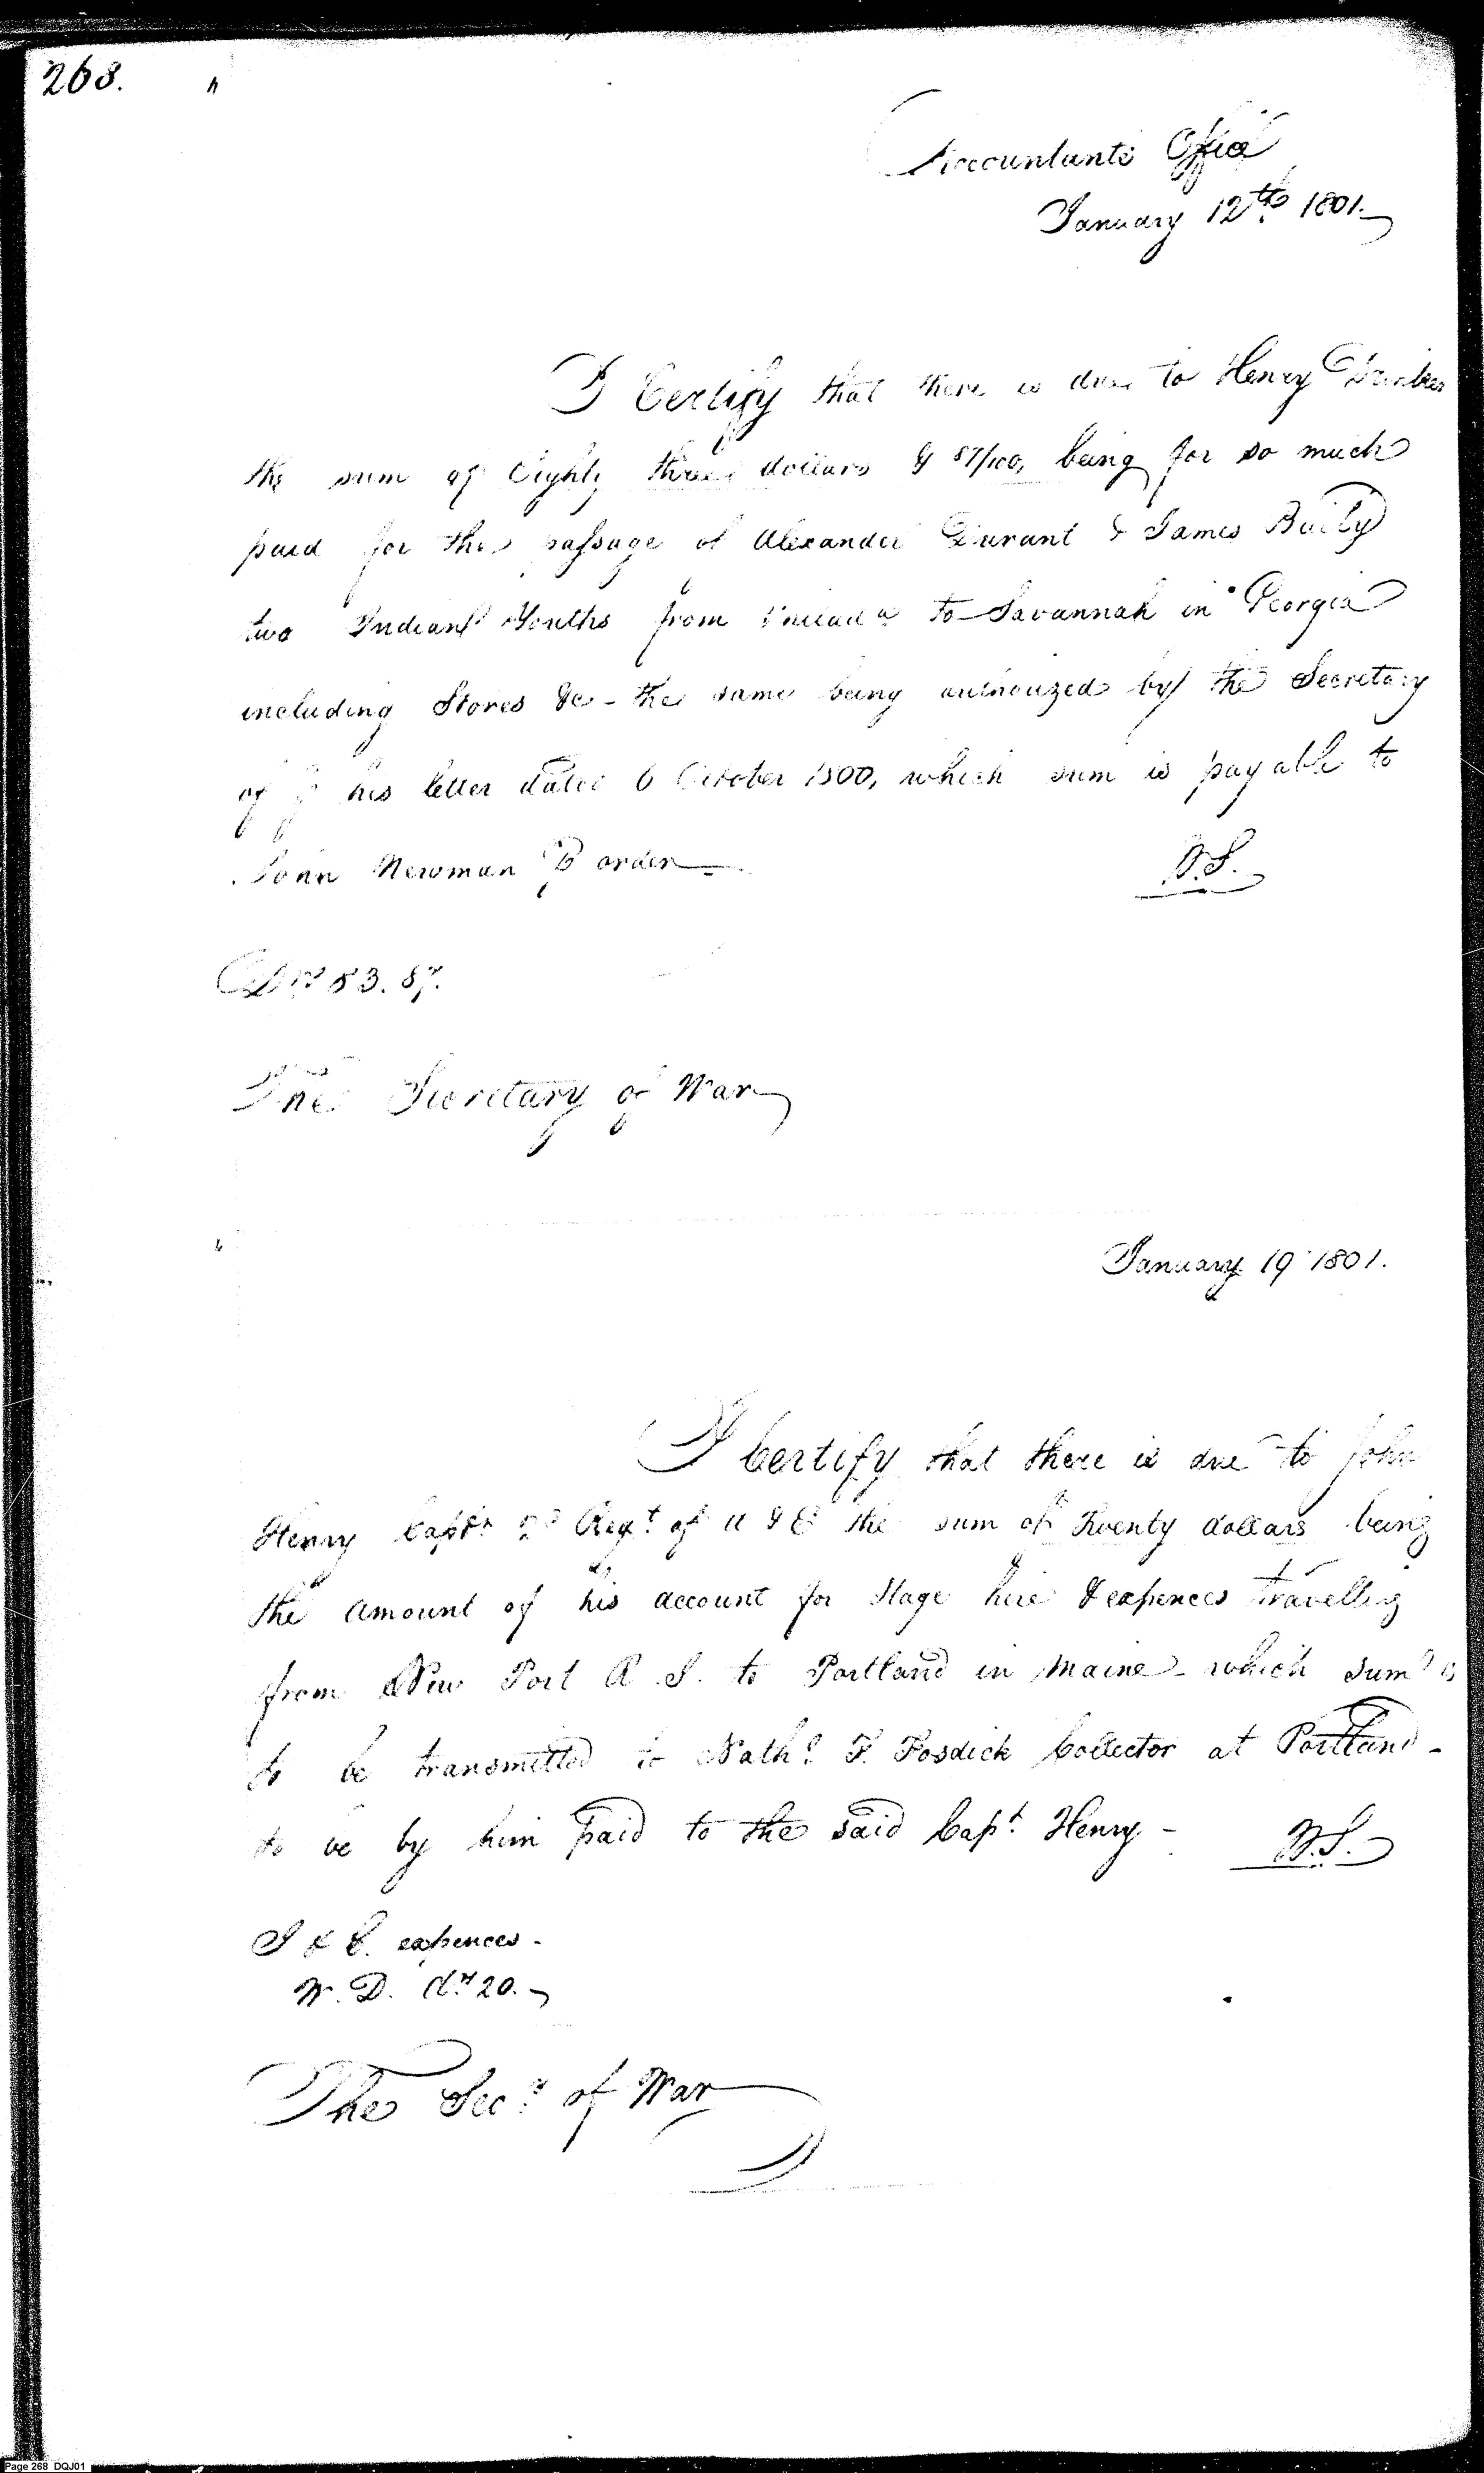 268.
Accountants Office
January 12th 1801.
I Certify that there is due to Henry Drinker
the sum of Eighty three dollars & 87/100, being for so much
paid for the passage of Alexander Durant & James Baily
two Indian Youths from Philada to Savannah in Georgia
including Stores &c - the same being authorized by the Secretary
of his letter dated 6 October 1800, which sum is payable to
John Newman order
W.S.
Drs 83.87.
The Secretary of War
January 19 1801.
I Certify that there is due to John
Henry Captn 2d Regt of A & E the sum of Twenty dollars being
the amount of his account for Stage hire & expences travelling
from New Port R.I. to Portland in Maine - which sum is
to be transmitted to Nathl F. Fosdick Collector at Portland -
to be by him paid to the said Capt Henry -
W.S.
I & C. expences -
W.D. drs 20.
The Secy of War
Page 268 DQJ01